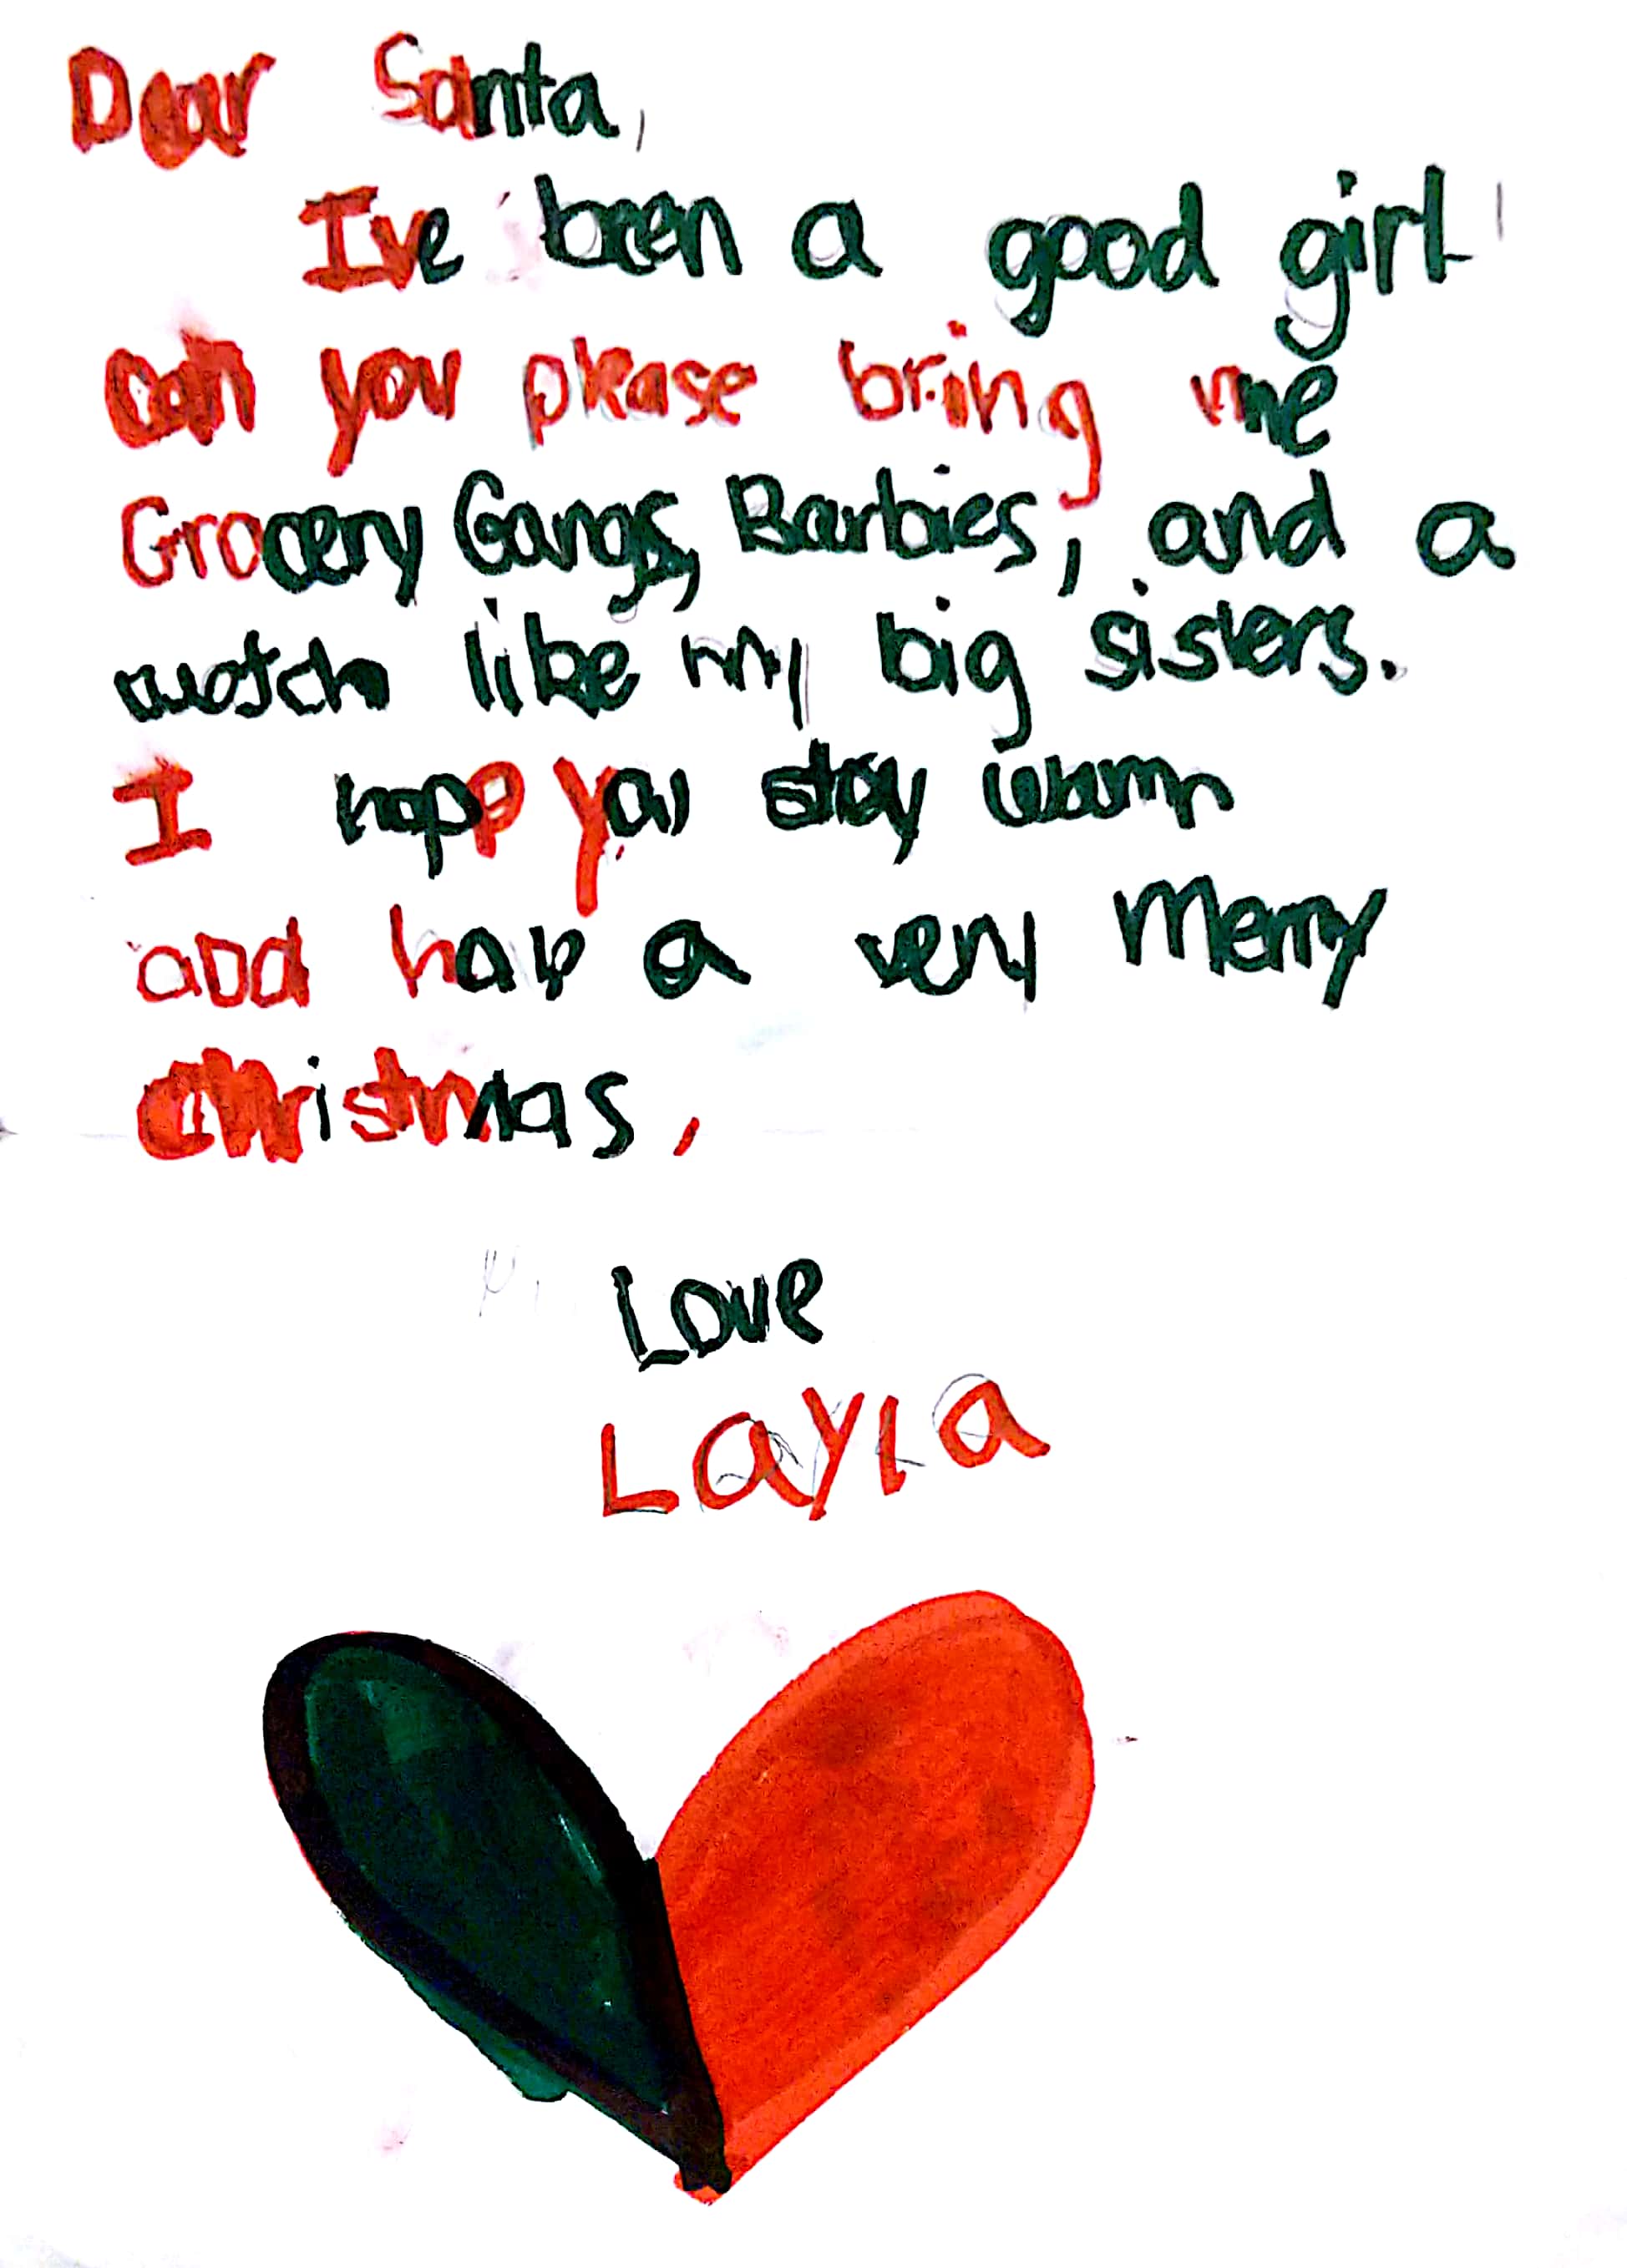 Dear Santa,
Ive been a good girl
can you please bring me
Grocery Gangs, Barbies, and a
watch like my big sisters.
I hope you stay warm
and have a very Merry
Christmas,
Love
Layla